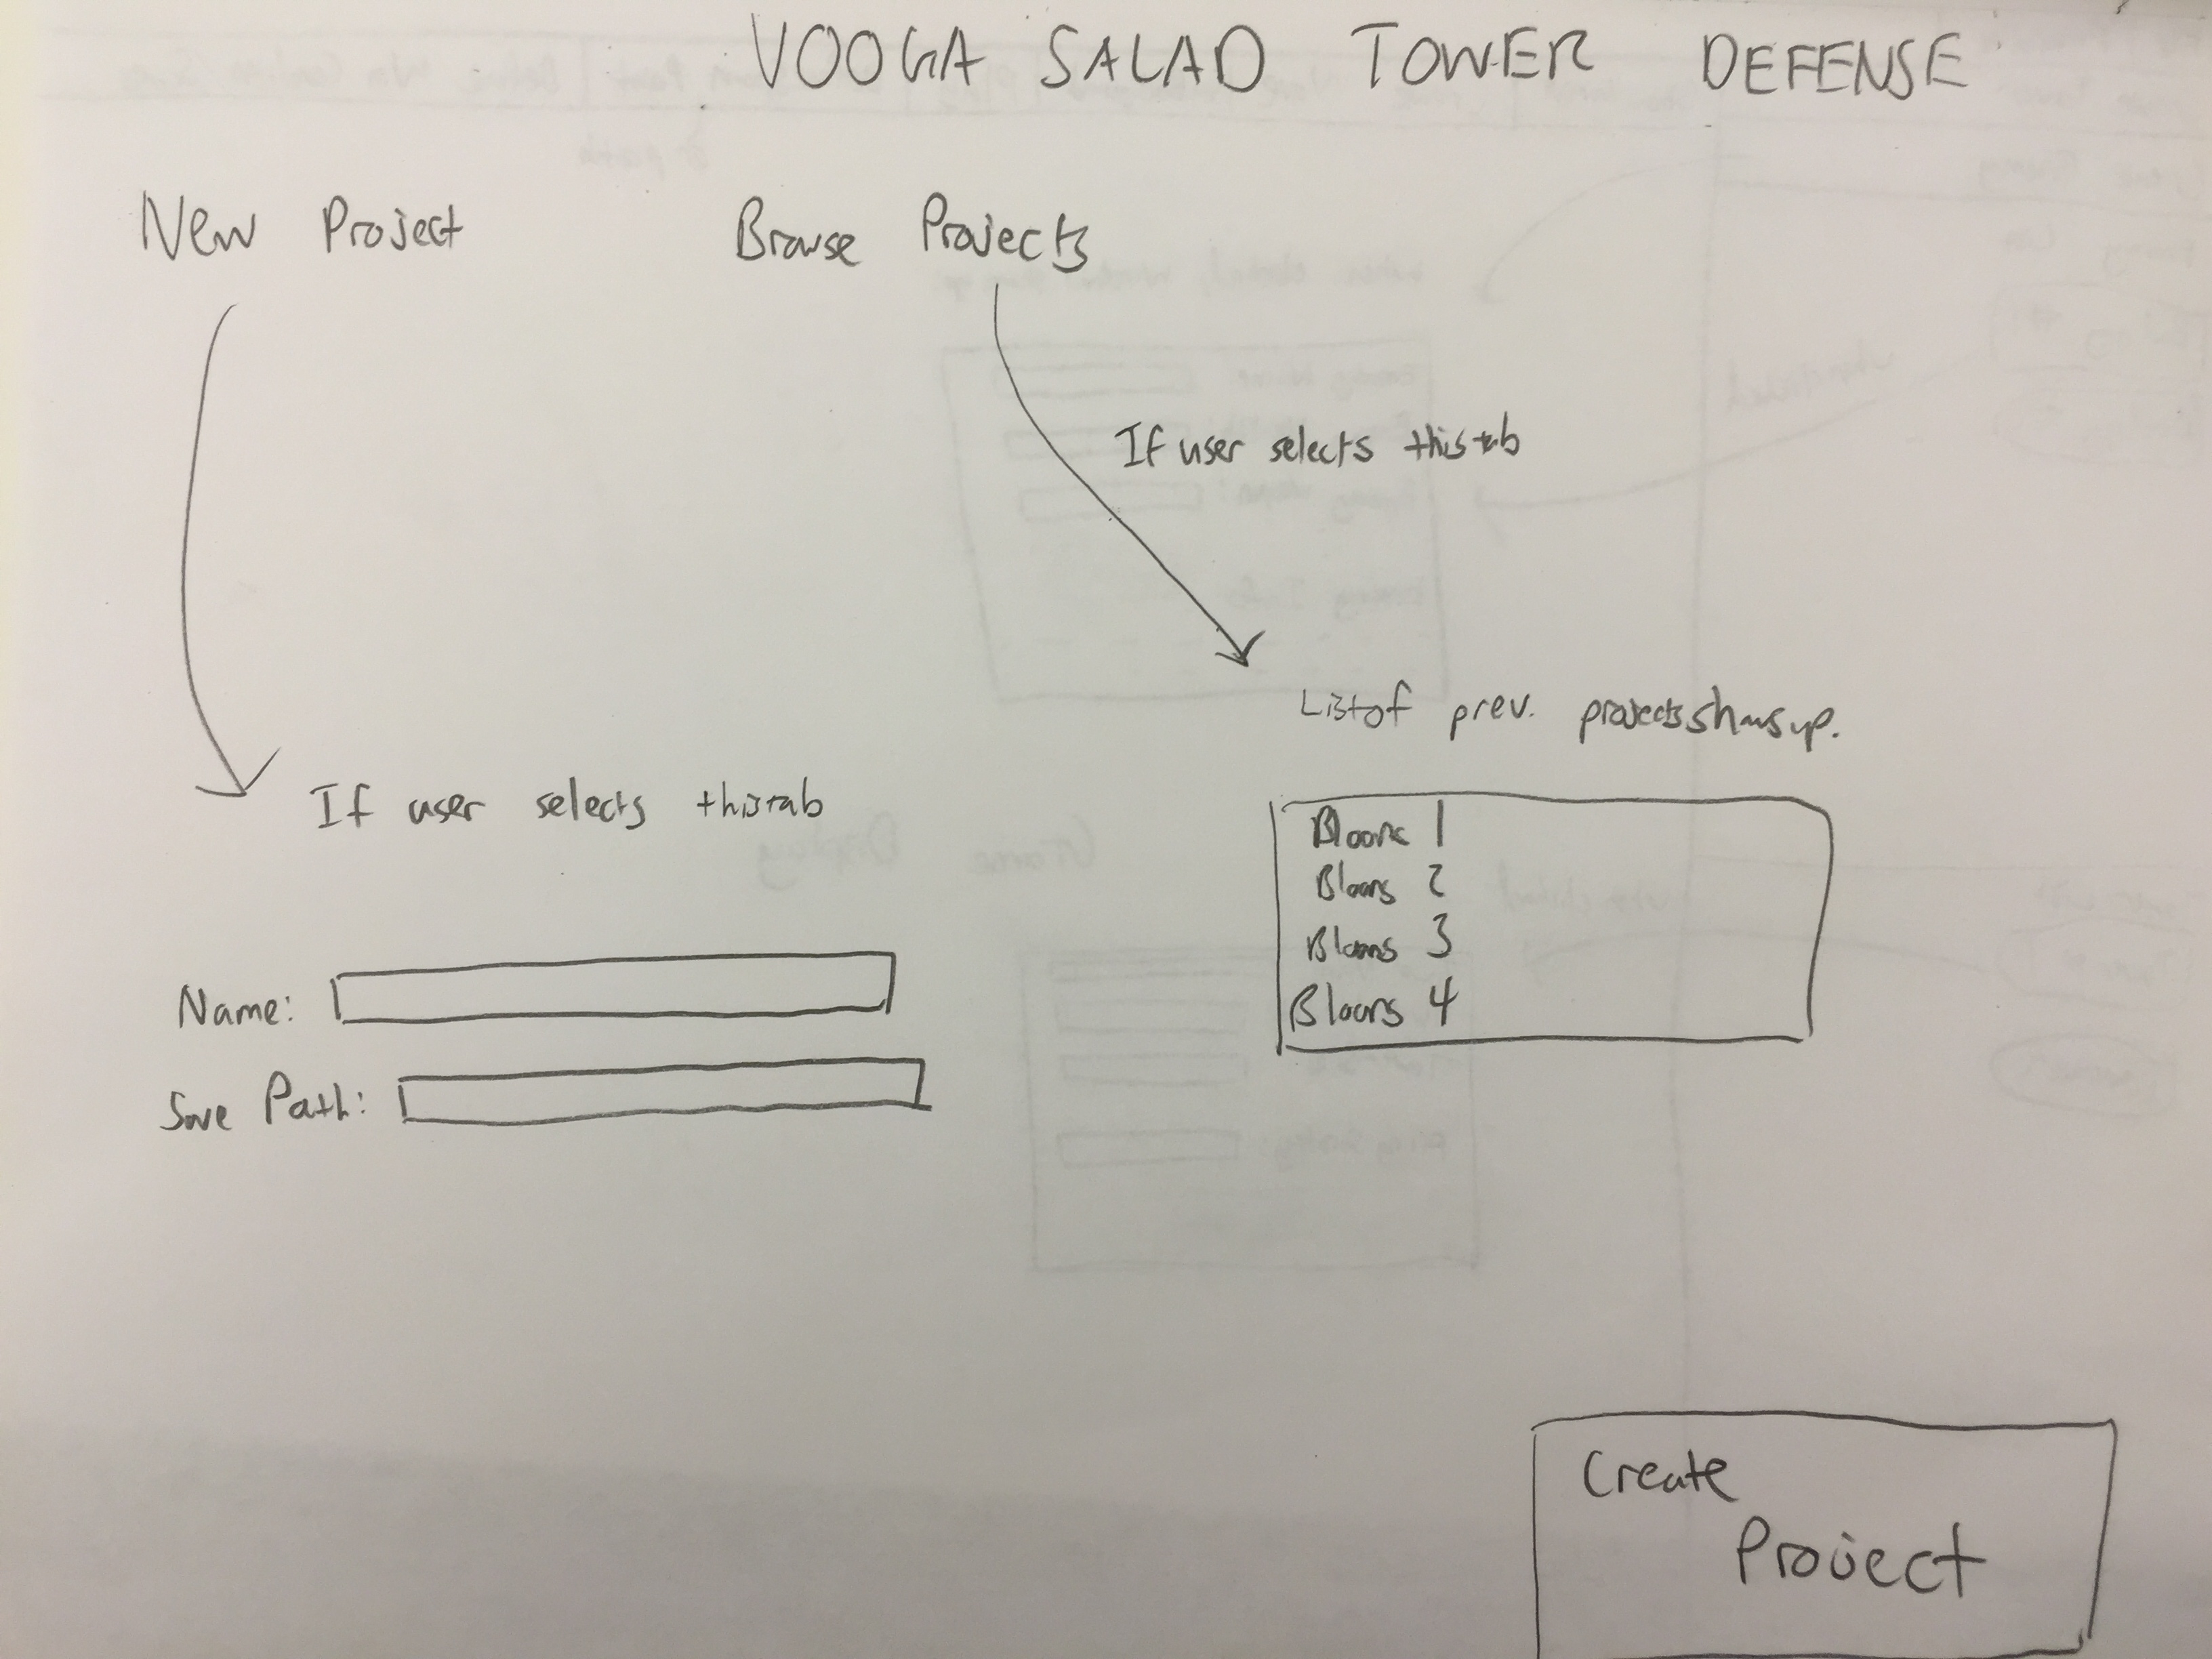 VOOGA SALAD TOWER DEFENSE
New Project
Browse Projects
If user selects this tab
If user selects this tab
List of prev. projects shows up.
Name:
Save Path:
Bloons 1
Bloons 2
Bloons 3
Bloons 4
Create
Project